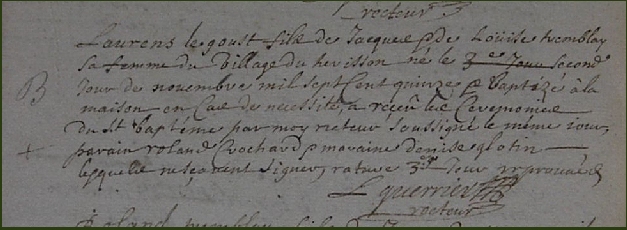 recteur
Laurens le goust fils de Jacques & de Louise tremblay
sa femme du village du herisson né le 3e Jour second
Jour de novembre mil sept cent quinze & baptizé à la
B
maison en Cas de necessité, a receu les Ceremonies
du st baptéme par moy recteur soussigné le même iour,
+ parain roland Crochard & maraine denise glotin
lesquels ne sçavent signer, rature 3e Jour approuvée
L guerrier
recteur
roland tremblay fils de